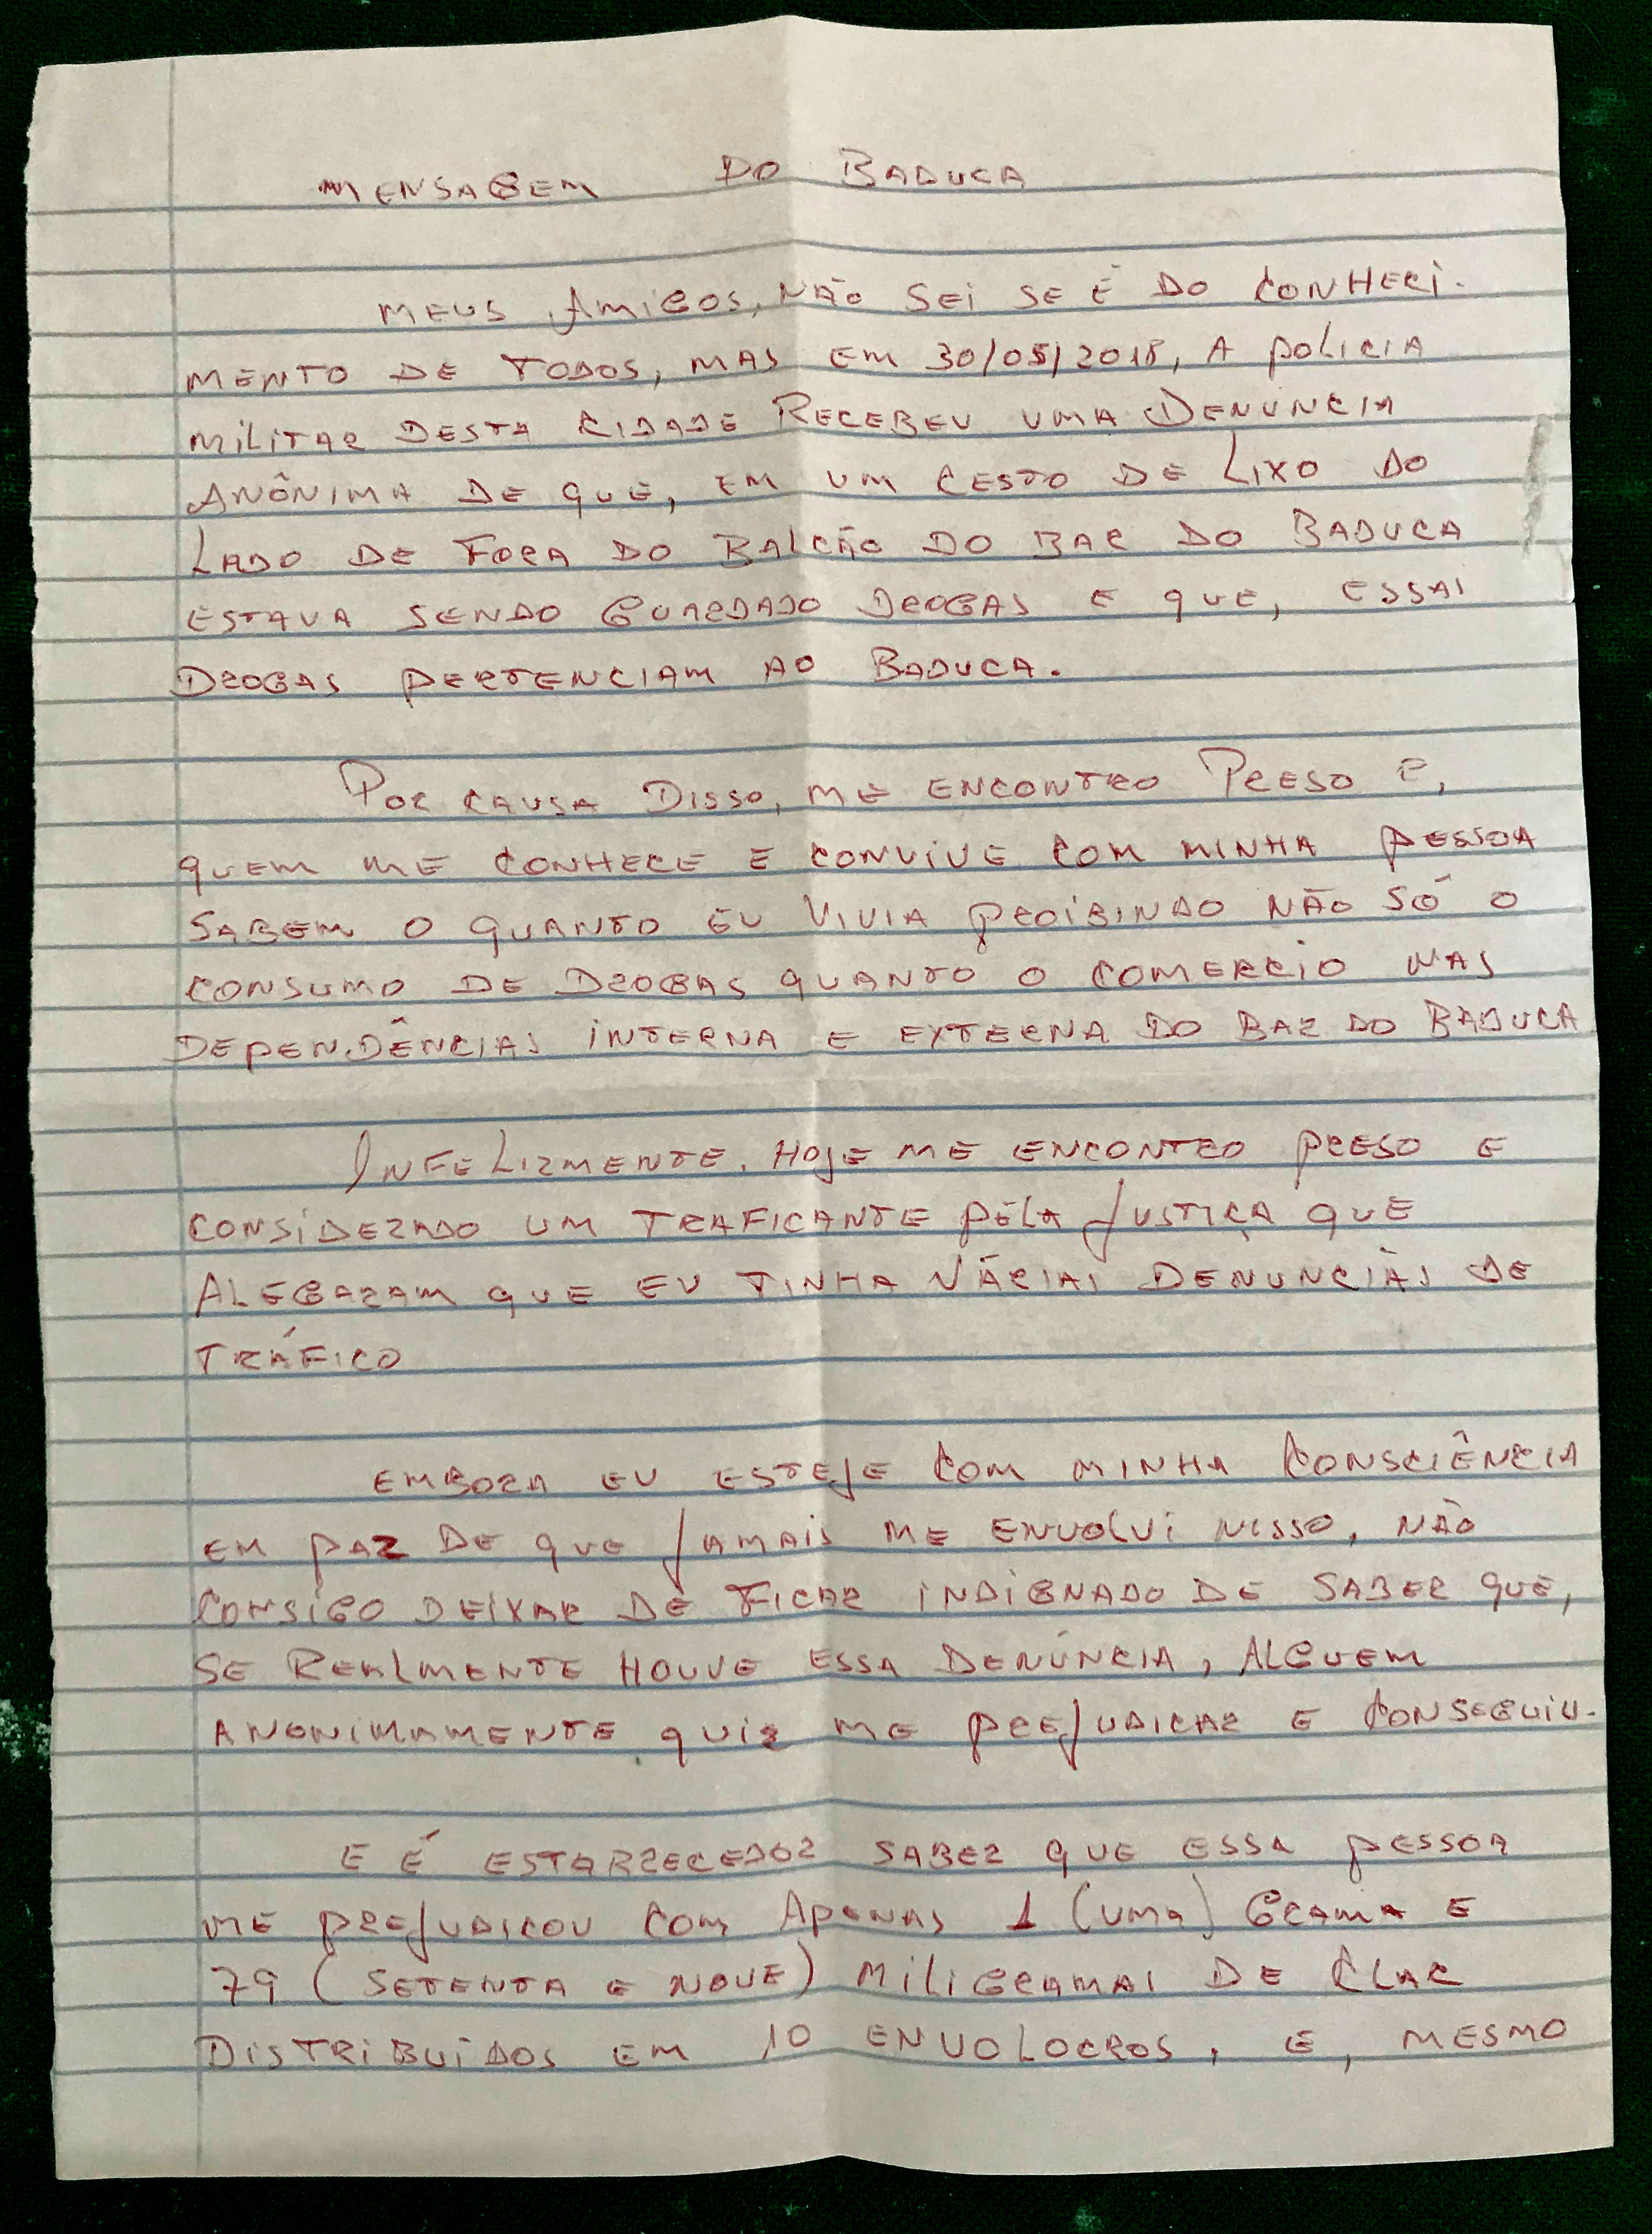 MENSAGEM DO BADUCA
MEUS AMIGOS, NÃO SEI SE É DO CONHECI-
MENTO DE TODOS, MAS EM 30/05/2018, A POLICIA
MILITAR DESTA CIDADE RECEBEU UMA DENUNCIA
ANÔNIMA DE QUE, EM UM CESTO DE LIXO DO
LADO DE FORA DO BALCÃO DO BAR DO BADUCA
ESTAVA SENDO GUARDADO DROGAS E QUE, ESSAS
DROGAS PERTENCIAM AO BADUCA.
POR CAUSA DISSO, ME ENCONTRO PRESO E,
QUEM ME CONHECE E CONVIVE COM MINHA PESSOA
SABEM O QUANTO EU VIVIA PROIBINDO NÃO SÓ O
CONSUMO DE DROGAS QUANTO O COMERCIO NAS
DEPENDÊNCIAS INTERNA E EXTERNA DO BAR DO BADUCA
INFELIZMENTE, HOJE ME ENCONTRO PRESO E
CONSIDERADO UM TRAFICANTE PELA JUSTIÇA QUE
ALEGARAM QUE EU TINHA VÁRIAS DENUNCIAS DE
TRÁFICO
EMBORA EU ESTEJE COM MINHA CONSCIÊNCIA
EM PAZ DE QUE JAMAIS ME ENVOLVI NISSO, NÃO
CONSIGO DEIXAR DE FICAR INDIGNADO DE SABER QUE,
SE REALMENTE HOUVE ESSA DENÚNCIA, ALGUEM
ANONIMAMENTE QUIZ ME PREJUDICAR E CONSEGUIU.
E É ESTARRECEDOR SABER QUE ESSA PESSOA
ME PREJUDICOU COM APENAS 1 (UMA) GRAMA E
79 (SETENTA E NOVE) MILIGRAMAS DE CLAC
DISTRIBUÍDOS EM 10 ENVOLOCROS, E, MESMO